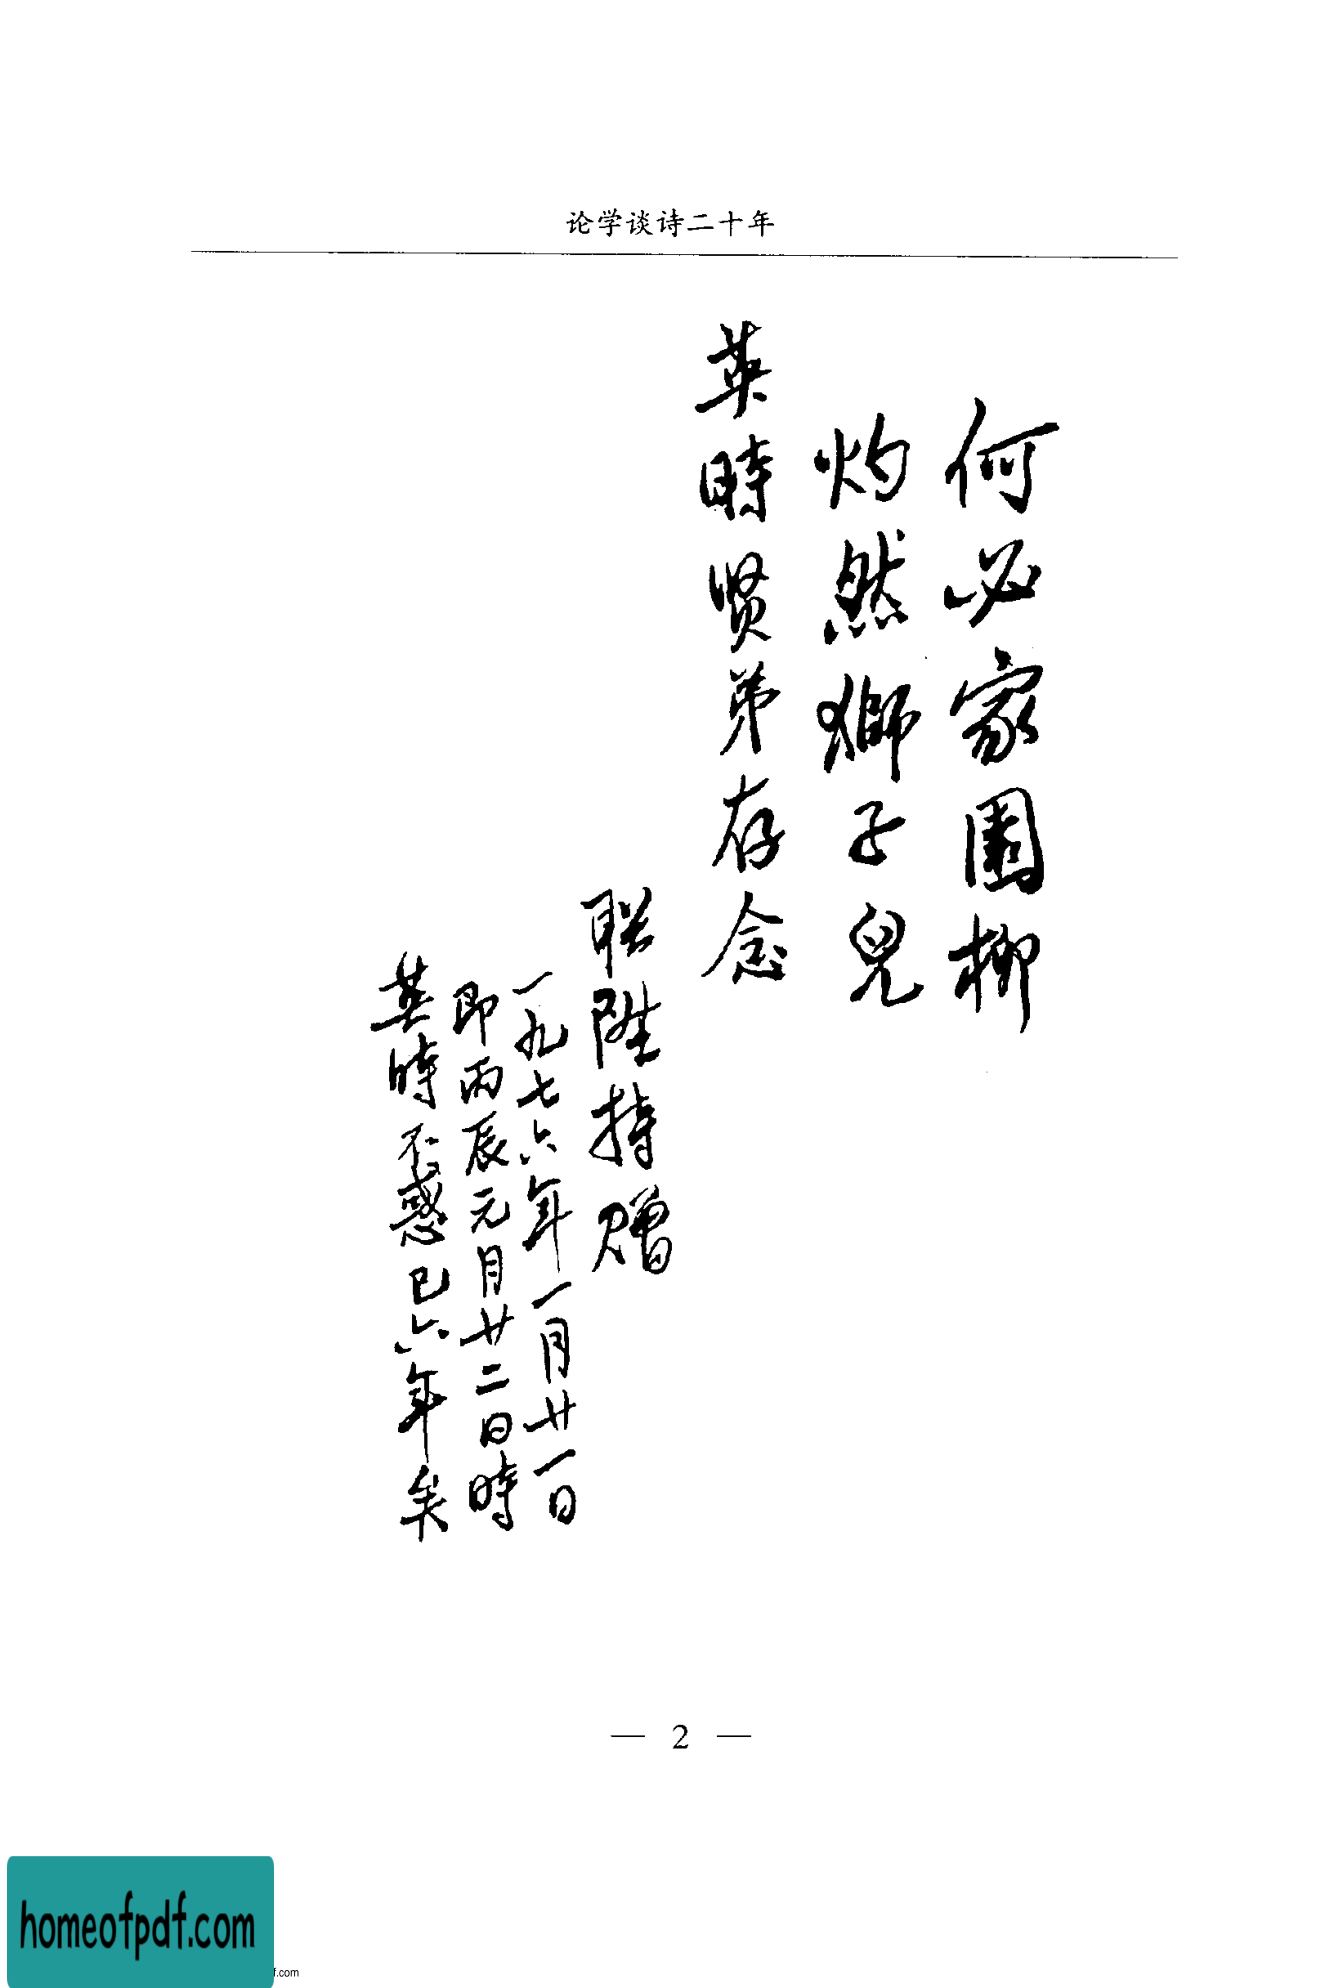 论学谈诗二十年
何必家園柳
灼然獅子兒
英時贤弟存念
联陞持赠
一九七六年一月廿一日
即丙辰元月廿二日時
英時不惑已六年矣
— 2 —
homeofpdf.com
f.com